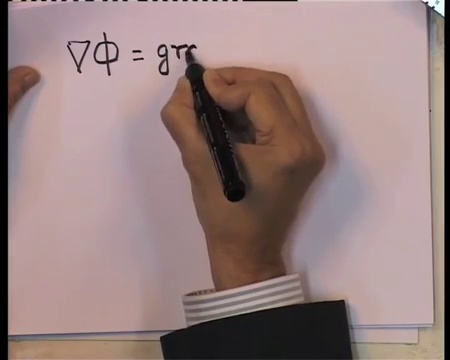 ∇Φ = gr